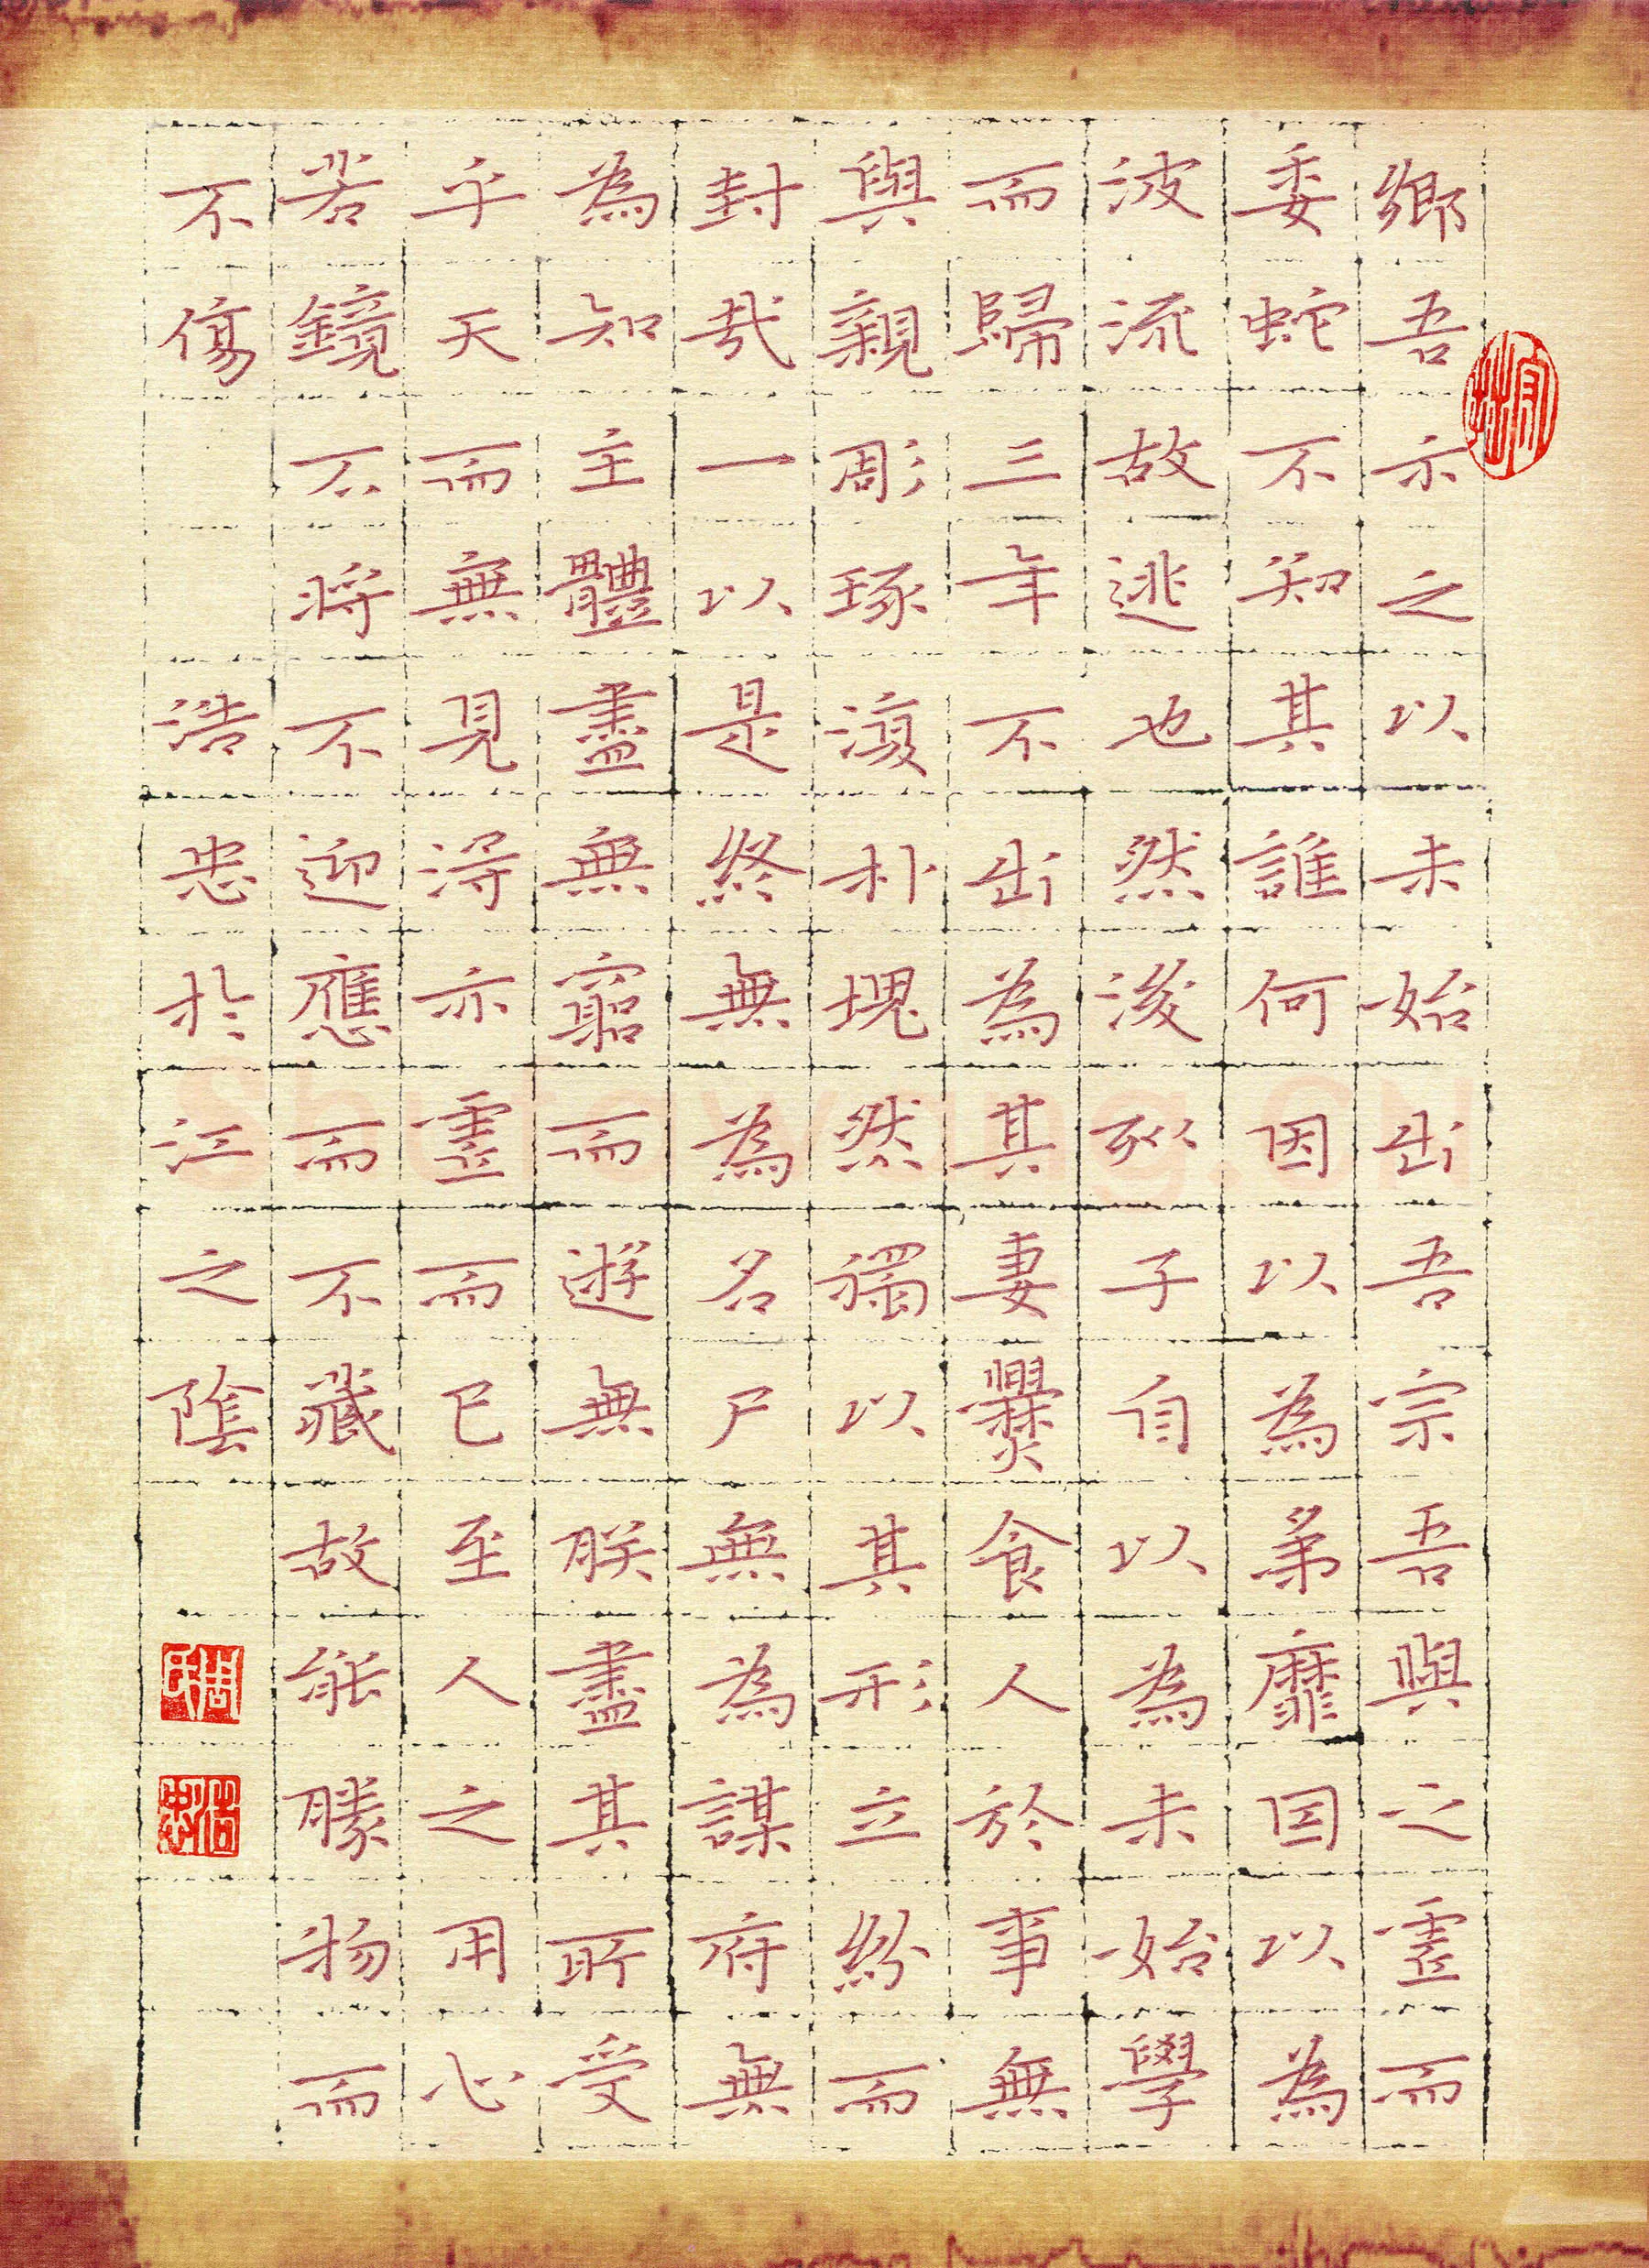 鄉吾示之以未始出吾宗吾與之虛而
委蛇不知其誰何因以為弟靡因以為
波流故逃也然後列子自以為未始學
而歸三年不出為其妻爨食人於事無
與親彫琢復朴塊然獨以其形立紛而
封哉一以是終無為名尸無為謀府無
為知主體盡無窮而遊無朕盡其所受
乎天而無見得亦虛而已至人之用心
若鏡不將不迎應而不藏故能勝物而
不傷 浩忠於江之陰
周氏
浩忠